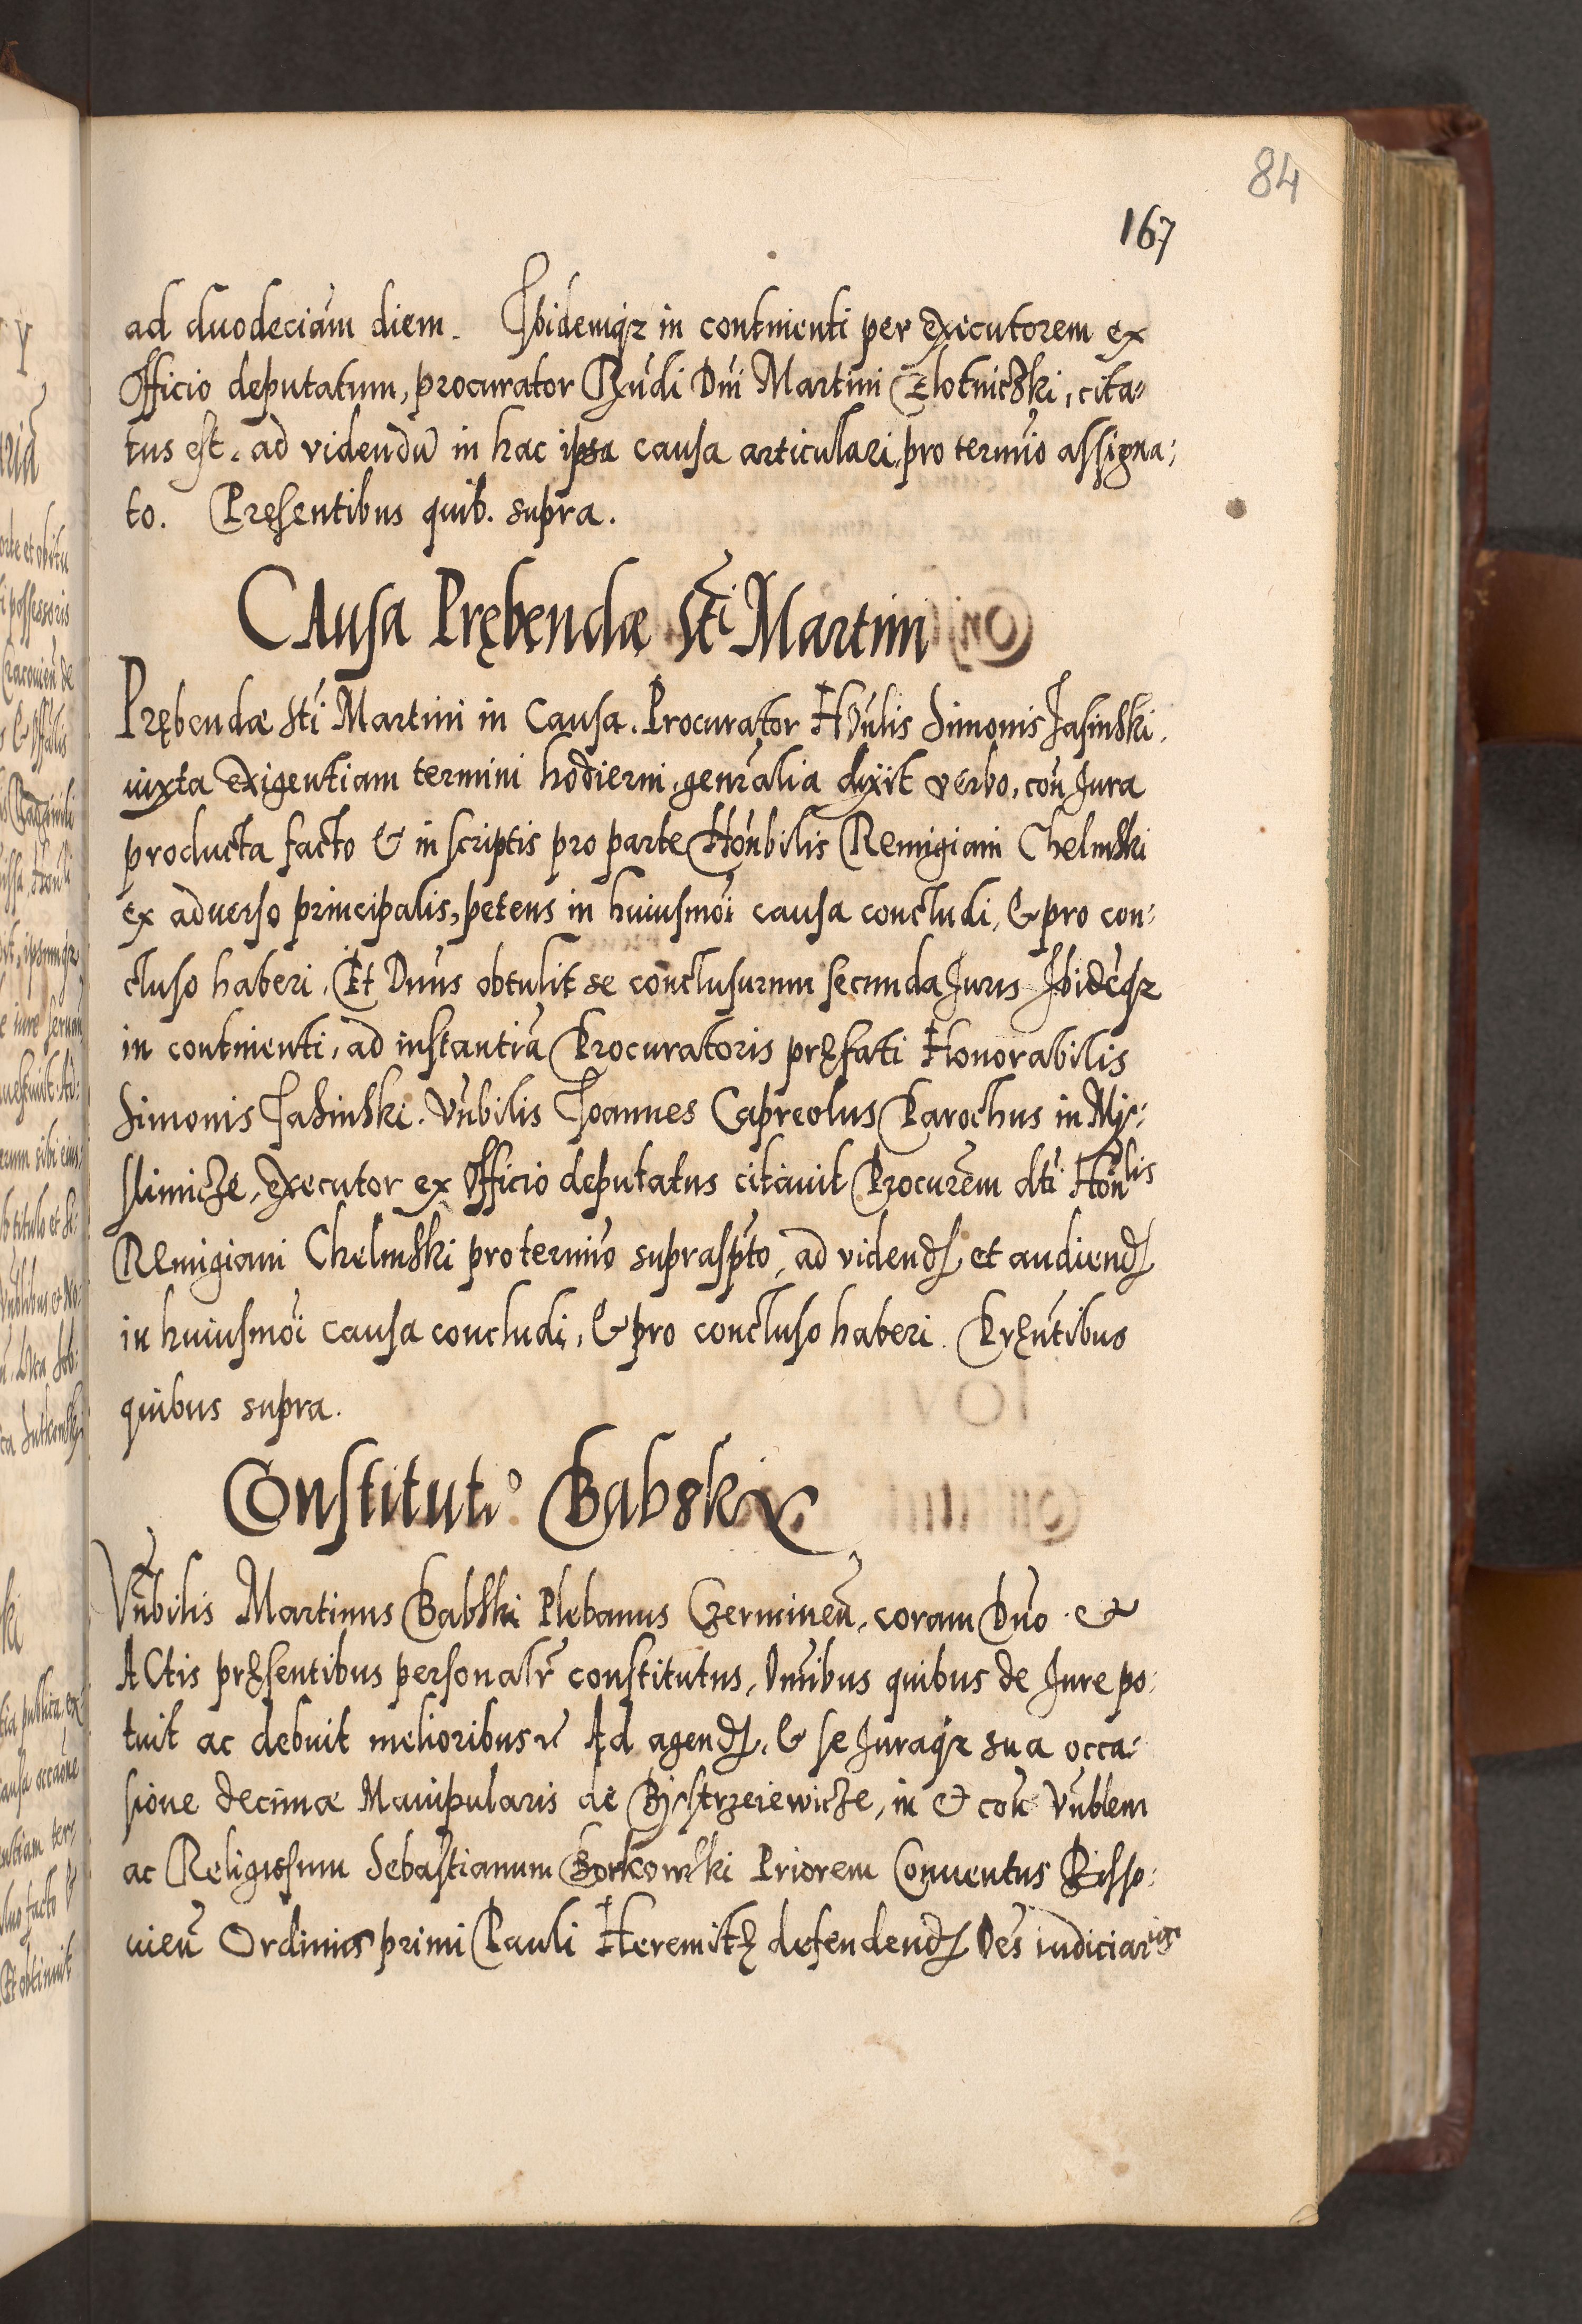 84
167
ad duodeciam diem. Ibidemqz in continenti per executorem ex
Officio deputatum, procurator Rṅdi Dni Martini Zlotniczki, cita-
tus est. ad videndū in hac ipsa causa articulari, pro termīo assigna-
to. Pręsentibus quib. supra.
CAusa Prębendæ Sti Martini
Prębendæ Sti Martini in Causa. Procurator Hṅlis Simonis Jasinski,
iuxta exigentiam termini hodierni, genralia dixit verbo, con Jura
producta facto & in scriptis pro parte Honbilis Remigiani Chelmski
ex adverso principalis, petens in huiusmoi causa concludi, & pro con-
cluso haberi. Et Dnus obtulit se conclusurum secunda Juris Ibidēqz
in continenti, ad instantiā Procuratoris pręfati Honorabilis
Simonis Jasinski. Vnbilis Joannes Capreolus Parochus in Mÿ-
slimicze, executor ex Officio deputatus citavit Procurem dti Honlis
Remigiani Chelmski pro termīo suprasp̄to, ad videnđ et audienđ
in huiusmoi causa concludi, & pro concluso haberi. Pręntibus
quibus supra.
Constitutio Babski
Vnbilis Martinus Babski Plebanus Czerminen̄, coram Dno et
ACtis pręsentibus personalr̄ constitutus, Omibus quibus de Jure po-
tuit ac debuit melioribus Ad agenđ, & se Juraqz sua occa-
sione decimæ Manipularis de Bystrzeiewicze, in et con Vnblem
ac Religiosum Sebastianum Borkowski Priorem Conventus
vien̄ Ordinis primi Pauli Heremitę defendenđ Oēs iudiciaris